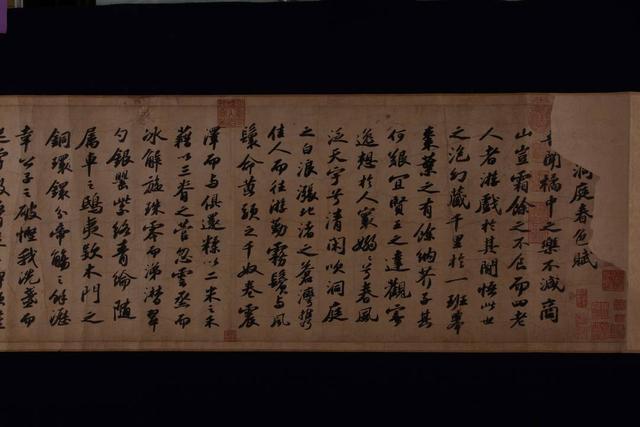 洞庭春色賦
吾聞橘中之樂不減商
山豈霜餘之不食而四老
人者游戲於其間悟此世
之泡幻藏千里於一班舉
棗葉之有餘納芥子其
何艱宜賢王之達觀寄
逸想於人寰嫋嫋兮春風
泛天宇兮清閑吹洞庭
之白浪漲北渚之蒼灣攜
佳人而往游勤霧鬢與風
鬟命黃頭之千奴卷震
澤而與俱還糅以二米之禾
藉以三脊之菅忽雲蒸而
冰解旋珠零而涕潸翠
勺銀罌紫絡青綸隨
屬車之鴟夷款木門之
銅環分帝觴之餘瀝
幸公子之破慳我洗盞而